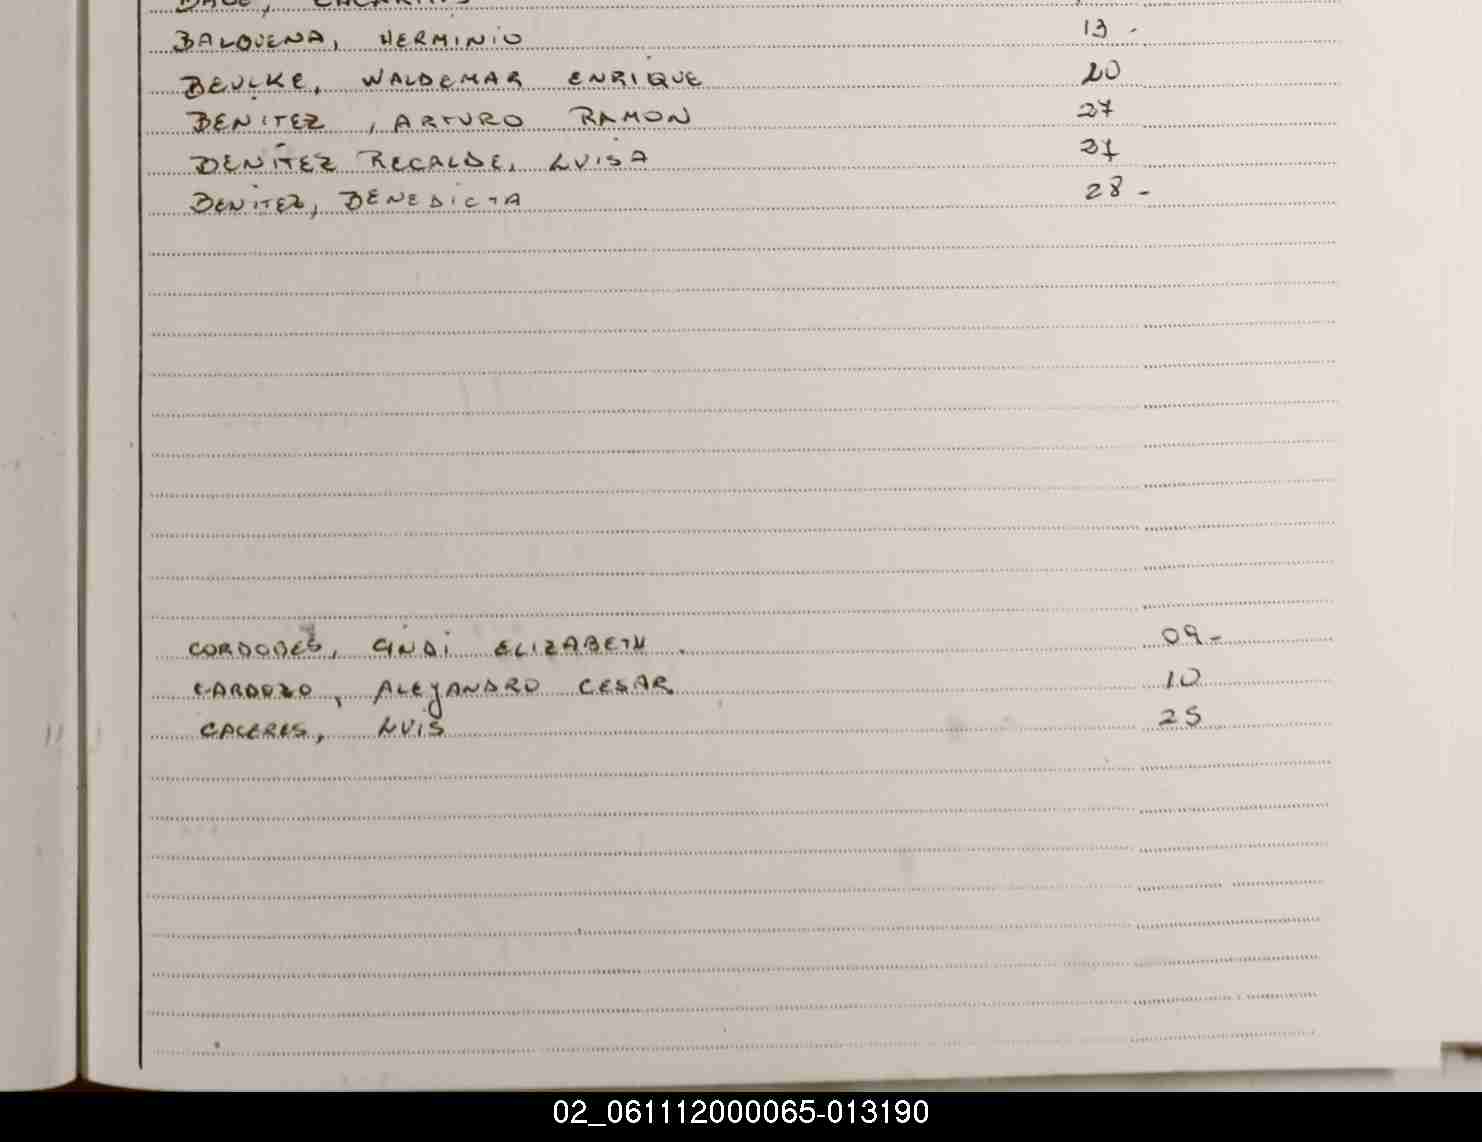 BALBUENA, HERMINIO 13 -
BEULKE, WALDEMAR ENRIQUE 20
BENITEZ, ARTURO RAMON 27
BENITEZ RECALDE, LUISA 27
BENITEZ, BENEDICTA 28 -
CORDOBES, CINDI ELIZABETH. 09 -
CARDOZO, ALEJANDRO CESAR 10
CACERES, LUIS 25
02_061112000065-013190